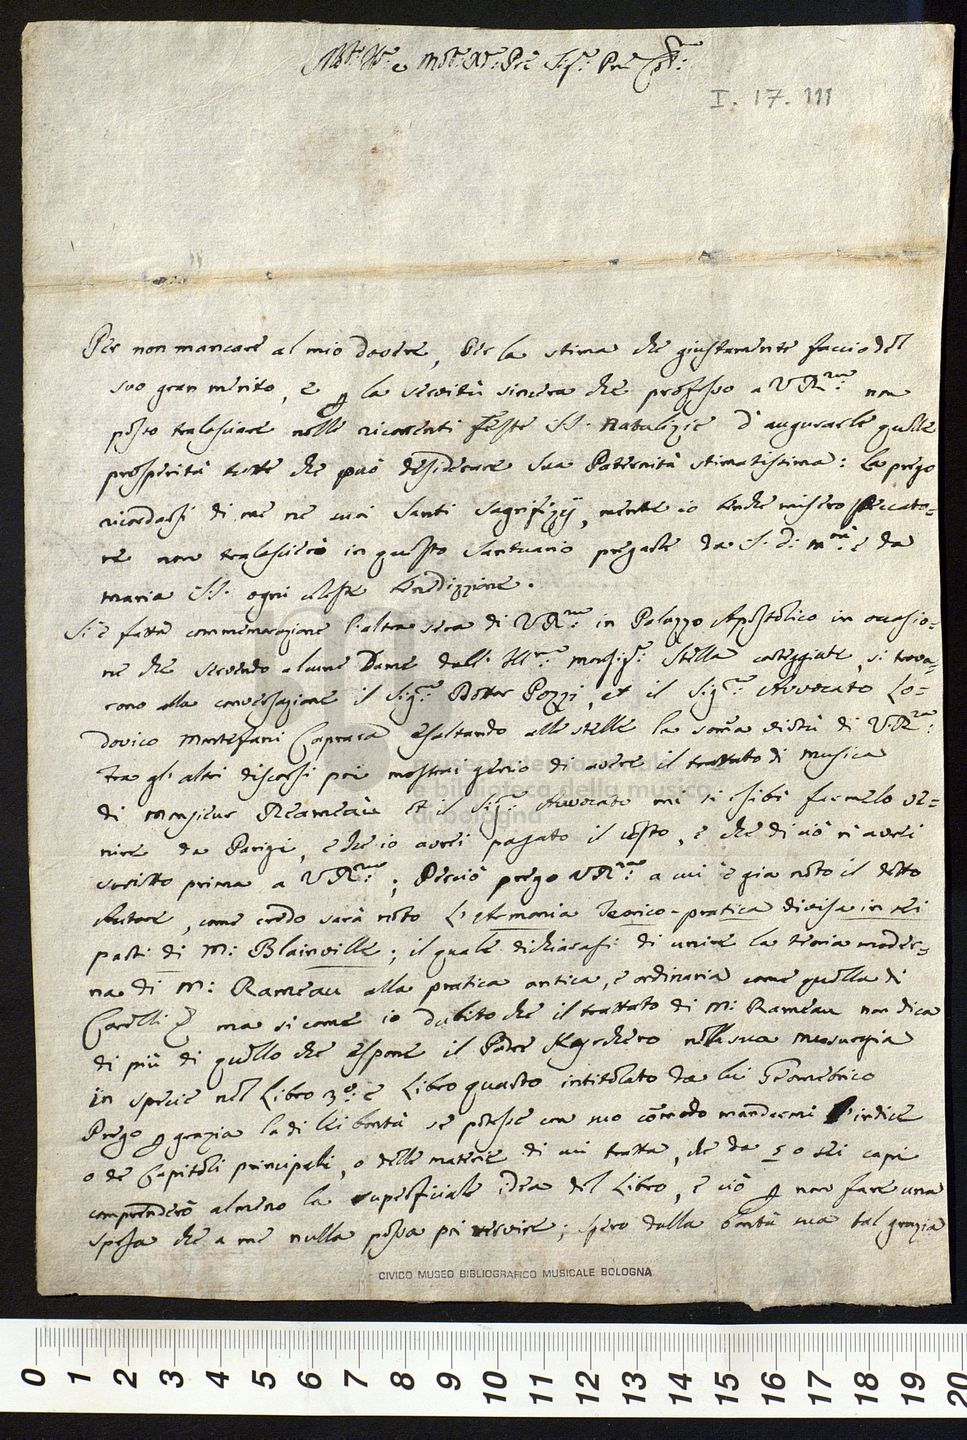 Mto. Rdo. e Mto. Rdo. Pre. Sigr. Pne. Colmo.
I. 17. 111
Per non mancare al mio dovere, Per la stima che giustamente faccio del
suo gran merito, e p la servitù sincera che professo a V.R.ma non
posso tralasciare nelle ricorrenti feste SS. Natalizie d'augurarle quelle
prosperità tutte che può desiderare Sua Paternità stimatissima: la prego
ricordarsi di me ne suoi Santi Sagrifizij, mentre io benche misero peccato=
re non tralascierò in questo Santuario pregarle da S. D. Mtà e da
Maria SS. ogni celeste benedizzione.
Si è fatta commemorazione l'altra sera di V.R.ma in Palazzo Apostolico in occasio=
ne che servendo alcune Dame dall' Ill.mo Monsigr. Stella corteggiate, si trova=
rono alla conversazione il Sigr. Dottor Pozzi, et il Sigr. Avvocato Lo=
dovico Montefani Caprara esaltando alle stelle la soma virtù di V.R.ma:
Tra gl'altri discorsi poi mostrai genio di avere il trattato di Musica
di Monsieur Reameau et il Sigr. Avvocato mi si esibì farmelo ve=
nire da Parigi, e che io averei pagato il costo, e che di ciò n'averei
scritto prima a V.R.ma; Perciò prego V.R.ma a cui è gia noto il detto
Autore, come credo sarà noto L'Armonia Teorico-pratica divisa in sei
parti di M: Blainville; il quale dichiarasi di unire la teoria moder=
na di M: Rameau alla pratica antica, e ordinaria come quella di
Corelli ma si come io dubito che il trattato di M: Rameau non dica
di più di quello che espone il Padre Kircchero nella sua Musurgia
in specie nel Libro 3º: e Libro quarto intitolato da lui Geometrico
Prego p grazia la di lei bontà se potesse con suo comodo mandarmi l'indice
o de Capitoli principali, o delle materie di cui tratta, che da 5 o sei capi
comprenderò almeno la superficiale idea del Libro, e ciò p non fare una
spesa che a me nulla possa poi servire; spero dalla bontà sua tal grazia
museo internazionale
e biblioteca della musica
di bologna
CIVICO MUSEO BIBLIOGRAFICO MUSICALE BOLOGNA
0 1 2 3 4 5 6 7 8 9 10 11 12 13 14 15 16 17 18 19 20